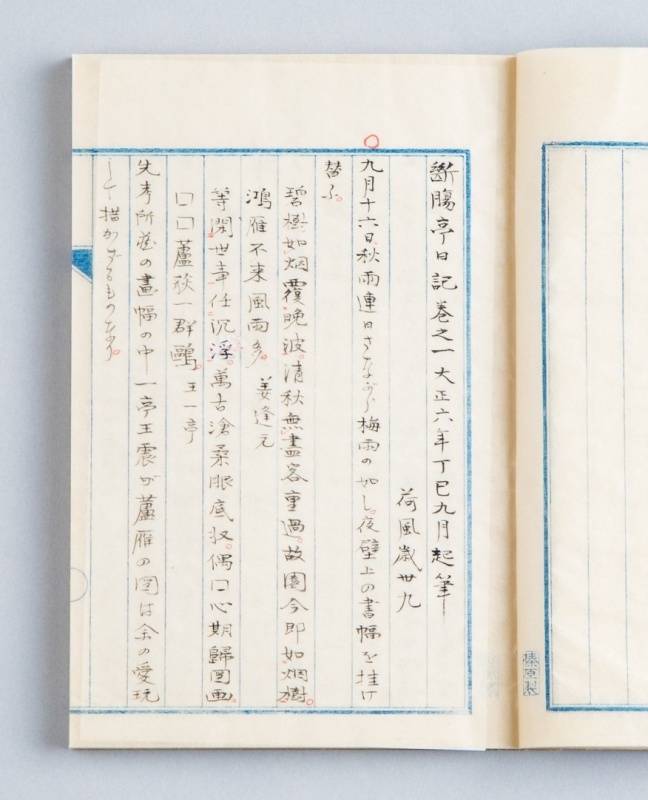 斷膓亭日記巻之一大正六年丁巳九月起筆
荷風歳卅九
九月十六日秋雨連日さながら梅雨の如し。夜壁上の書幅を挂け
替ふ。
碧樹如烟覆晩波。清秋無盡客重過。故園今即如烟樹。
鴻雁不来風雨多。姜逢元
等閑世事任沉浮。萬古滄桑眼底収。偶□心期歸圖画。
□□蘆荻一群鷗。王一亭
先考所蔵の畫幅の中一亭王震が蘆雁の図は余の愛玩
して措かざるものなり。
榛原製